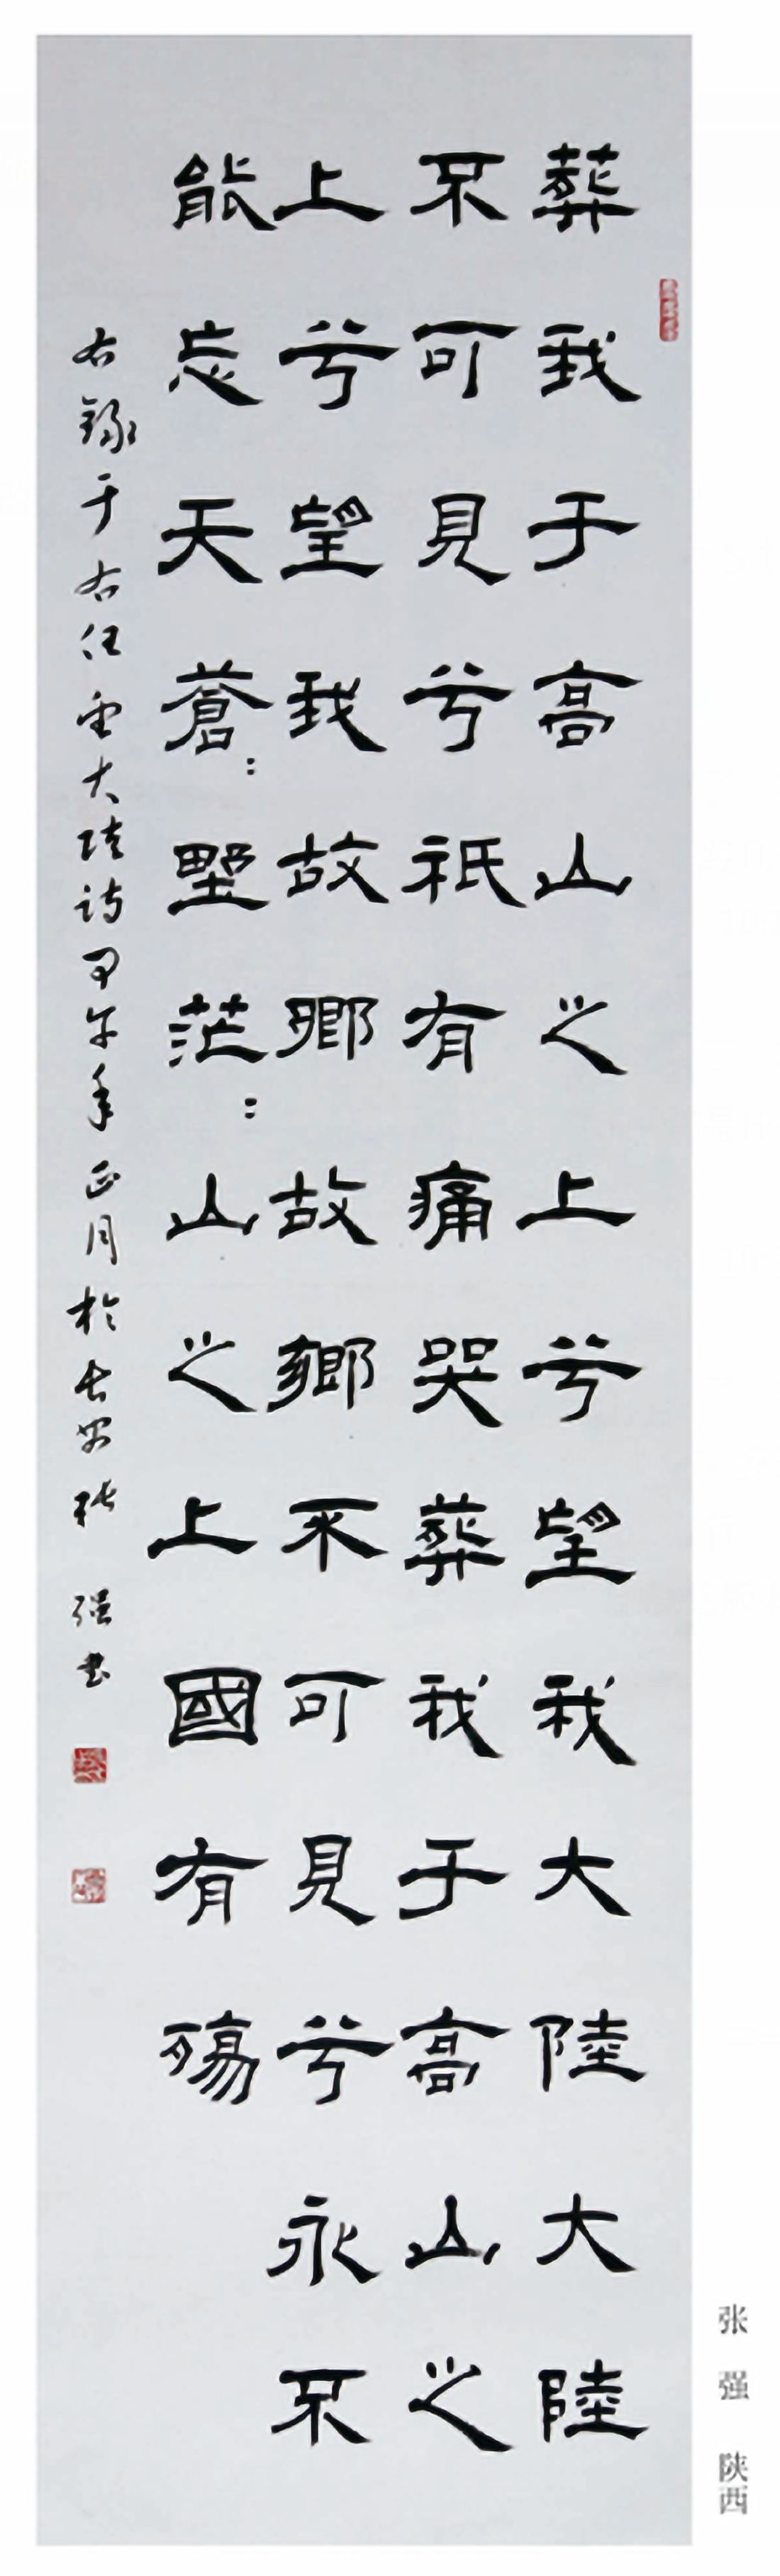 葬我于高山之上兮望我大陸大陸
不可見兮祇有痛哭葬我于高山之
上兮望我故鄉故鄉不可見兮永不
能忘天蒼:野茫:山之上國有殤
右錄于右任望大陸詩甲午年正月於長安張强書
张强 陕西